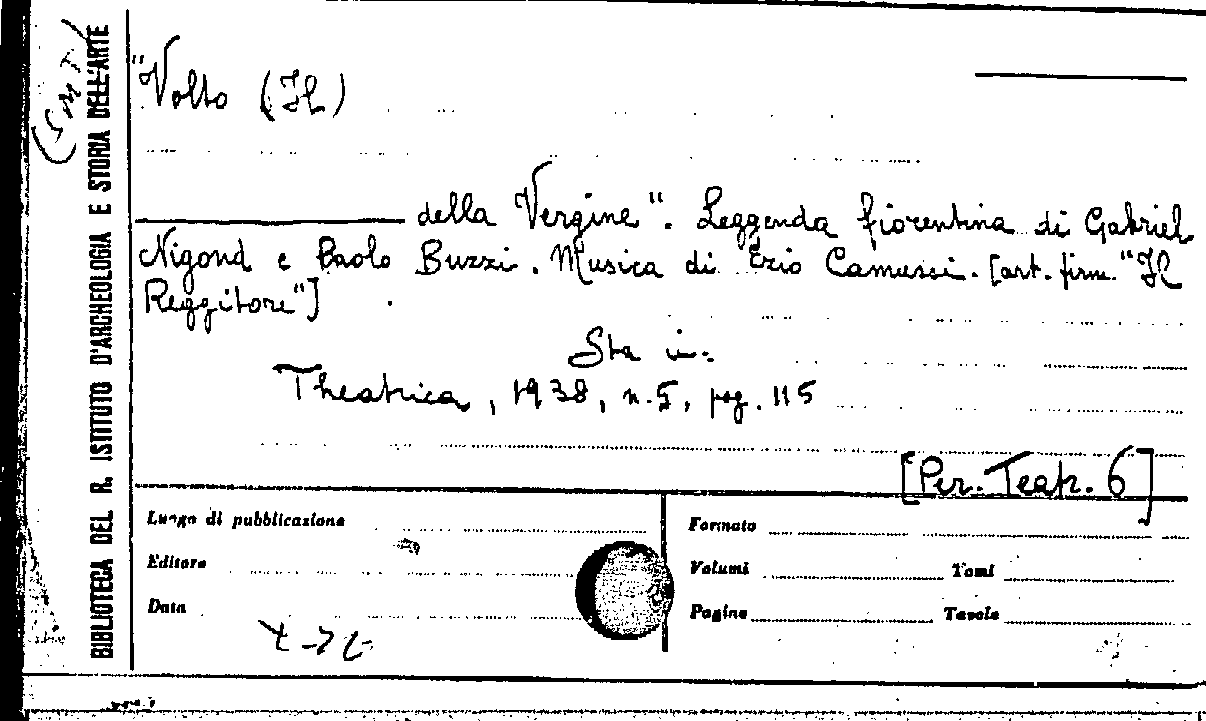 "Volto (Il)
della Vergine". Leggenda fiorentina di Gabriel
Nigond e Paolo Buzzi. Musica di Ezio Camussi. [art. firm. "Il
Reggitore"]
Sta in:
Theatrica, 1938, n. 5, pag. 115
[Per. Teatr. 6]
Luogo di pubblicazione
Editore
Data
Formato
Volumi Tomi
Pagine Tavole
BIBLIOTECA DEL R. ISTITUTO D'ARCHEOLOGIA E STORIA DELL'ARTE